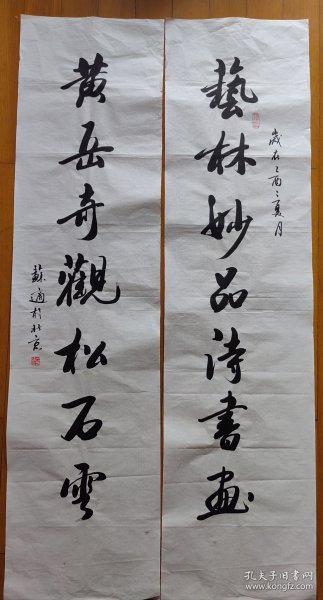 藝林妙品詩書画
歲在乙酉之夏月
黄岳奇觀松石雲
蘇適於北京
孔夫子旧书网
www.kongfz.com